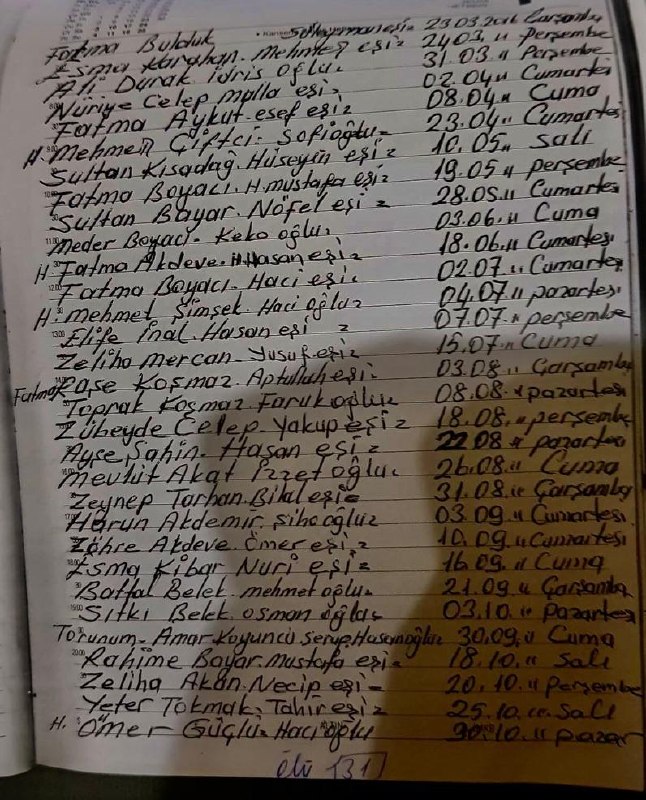 Fatma Bulduk Süleyman eşi 23.03.2016 Çarşamba
Esma Karahan. Mehmet eşi 24.03. " Perşembe
Ali Durak İdris oğlu. 31.03. " Perşembe
Nuriye Celep Molla eşi 02.04 " Cumartesi
Fatma Aykut esef eşi 2 08.04 " Cuma
H. Mehmet Çiftci. Sofioğlu 23.04. " Cumartesi
Sultan Kısadağ. Hüseyin eşi 2 10.05 " Salı
Fatma Boyacı. H. mustafa eşi 2 19.05 " perşembe
Sultan Bayar. Nofel eşi 2 28.05 " Cumartesi
Meder Boyacı. Keko oğlu. 03.06. " Cuma
H. Fatma Akdeve. H. Hasan eşi 2 18.06. " Cumartesi
Fatma Boyacı. Haci eşi. 02.07 " Cumartesi
H. mehmet Şimşek. Haci oğlu 2 04.07 " pazartesi
Elife İnal. Hasan eşi 2 07.07. " perşembe
Zeliha Mercan. Yusuf eşi 2 15.07. " Cuma
Fatma Paşe Koşmaz. Aptullah eşi. 03.08 " Çarşamba
Toprak Koşmaz Faruk oğlu 2 08.08. " pazartesi
Zübeyde Celep Yakup eşi 2 18.08. " perşembe
Ayşe Şahin. Hasan eşi 2 22.08 " pazartesi
Mevlüt Akat İzzet oğlu. 26.08. " Cuma
Zeynep Tarhan. Bilal eşi 31.08. " Çarşamba
Harun Akdemir. Siho oğlu 2 03.09. " Cumartesi
Zöhre Akdeve. Ömer eşi 2 10.09. " Cumartesi
Esma Kibar Nuri eşi 2 16.09. " Cuma
Battal Belek. mehmet oğlu. 21.09 " Çarşamba
Sıtkı Belek. osman oğlu 03.10. " pazartesi
Torunum. Amar Koyuncu 30.09. " Cuma
Rahime Bayar. Mustafa eşi 18.10. " Salı
Zeliha Akan. Necip eşi 20.10. " perşembe
Yeter Tokmak. Tahir eşi 2 25.10. " Salı
H. Ömer Güçlü. Haci oğlu 30.10. " pazar
ölü 131